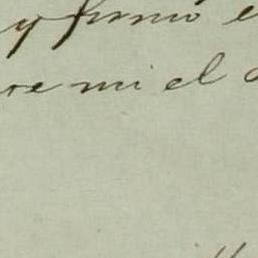 y firmó e
re mi el